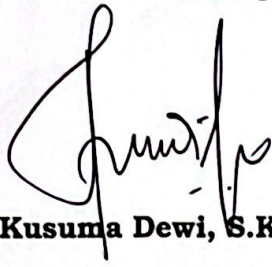 Kusuma Dewi, S.K